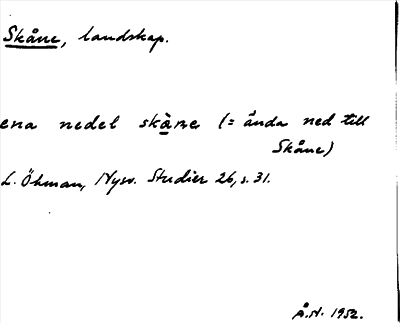 Skåne, landskap.
ena nedel skåne (= ända ned till
Skåne)
L. Öhman, Nysv. Studier 26, s. 31.
Å.N. 1952.